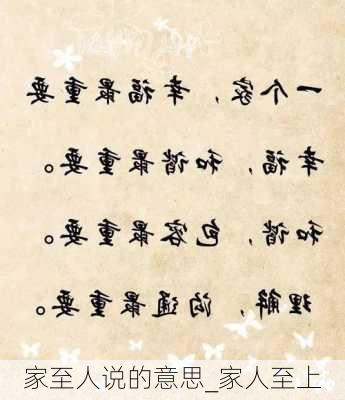 一个家，幸福最重要
幸福，和谐最重要。
和谐，包容最重要。
理解，沟通最重要。
家至人说的意思_家人至上